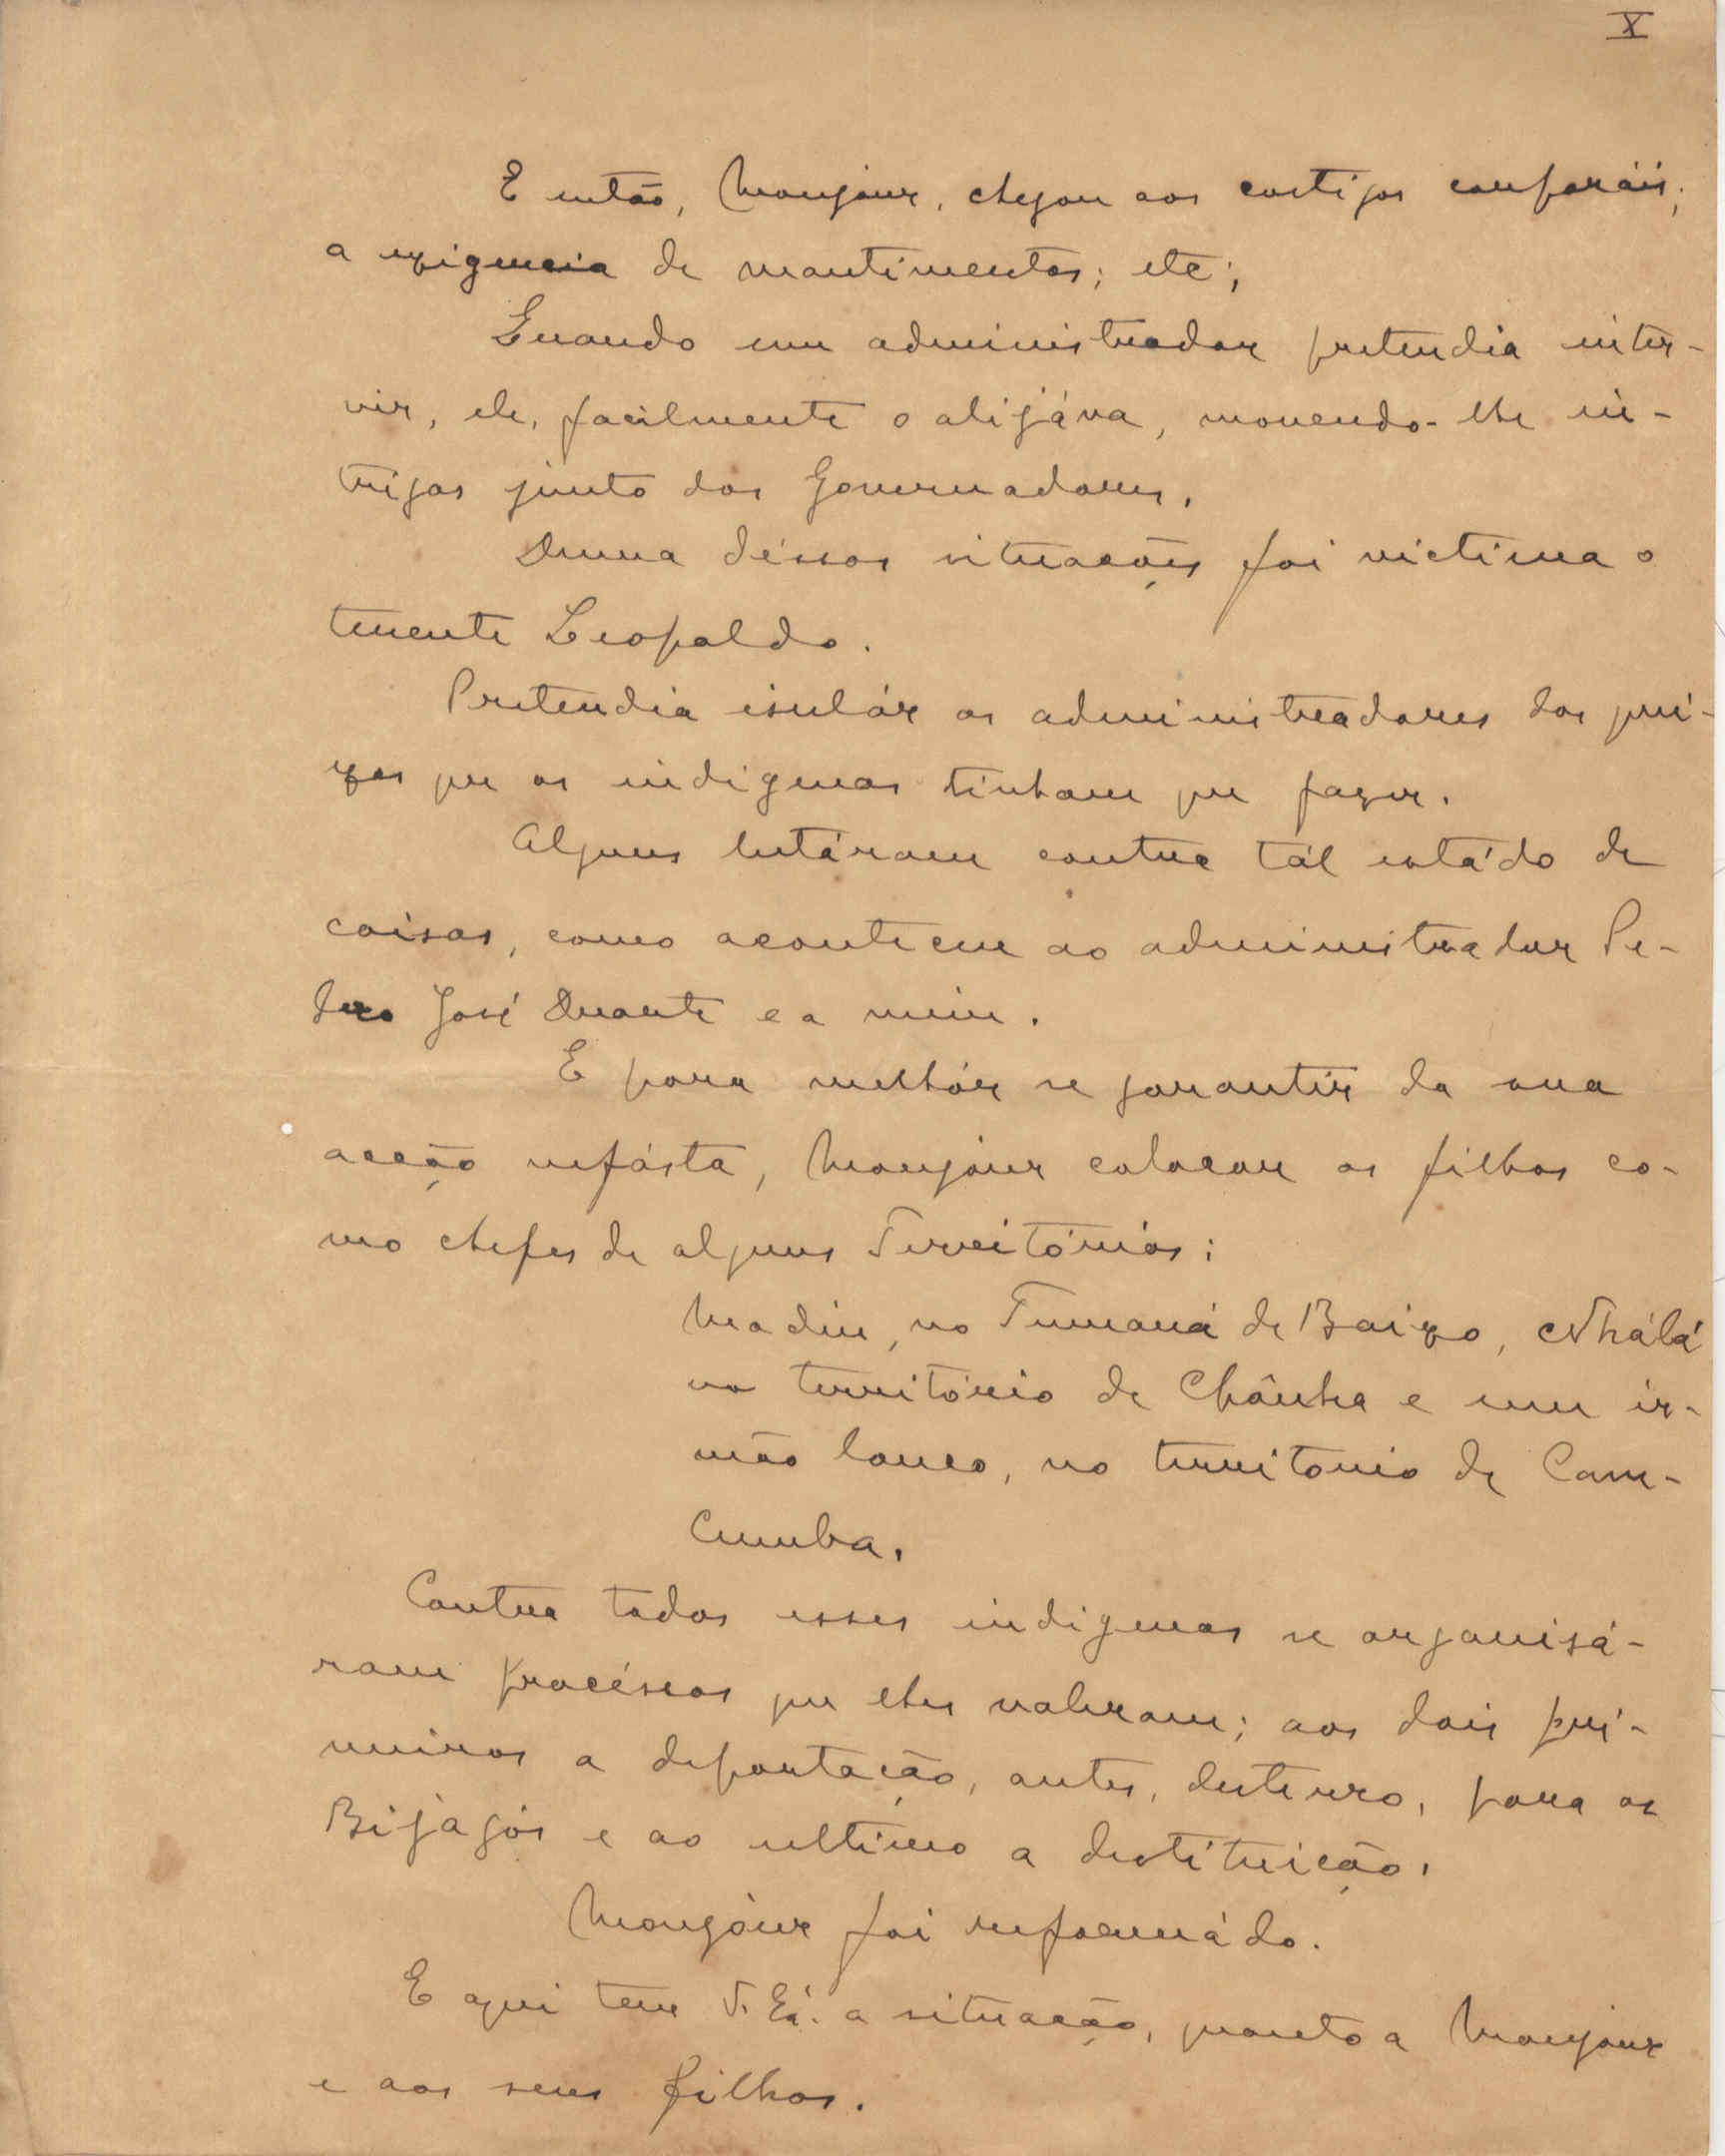 X
E então, Monjour, chegou aos castigos corporáis;
a exigencia de mantimentos; etc;
Quando um administrador pretendia inter-
vir, ele, facilmente o alijáva, movendo-lhe in-
trigas junto dos Governadores.
Duma déssas situações foi victima o
tenente Leopoldo.
Pretendia isulár os administradores das quei-
xas que os indigenas tinham que fazer.
Alguns lutáram contra tál estádo de
coisas, como aconteceu ao administrador Pe-
dro José Duarte e a mim.
E para melhór se garantir da sua
acção nefásta, Monjour colocou os filhos co-
mo chefes de alguns Territórios:
Madiu, no Tumaná de Baixo, Nhálá
no território de Chânha e um ir-
mão louco, no territorio de Cam-
Cumba.
Contra todos esses indigenas se organisá-
ram procéssos que lhes valeram; aos dois pri-
meiros a deportação, antes, desterro, para os
Bijagós e ao ultimo a destituição.
Monjour foi reformádo.
E aqui tem V. Exª. a situação, quanto a Monjour
e aos seus filhos.